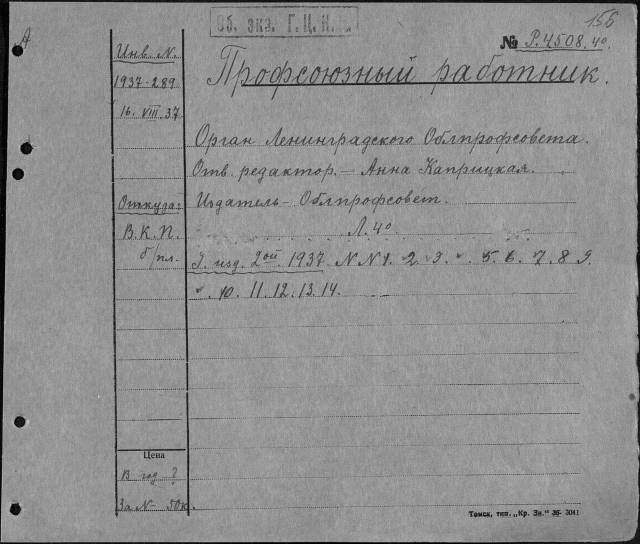 156
Об. экз. Г.Ц.К.
№ Р.4508. 4о.
Профсоюзный работник.
Инв. N.
1937-289
16. VIII. 37
Орган Ленинградского Облпрофсовета.
Отв. редактор. - Анна Каприцкая.
Откуда:
Издатель - Облпрофсовет.
В.К.П.
Л. 4о
б/пл.
изд. 2ой. 1937. N N 1. 2. 3. 5. 6. 7. 8. 9.
10. 11. 12. 13. 14.
Цена
В год ?
За N - 50к.
Томск, тип. „Кр. Зн."